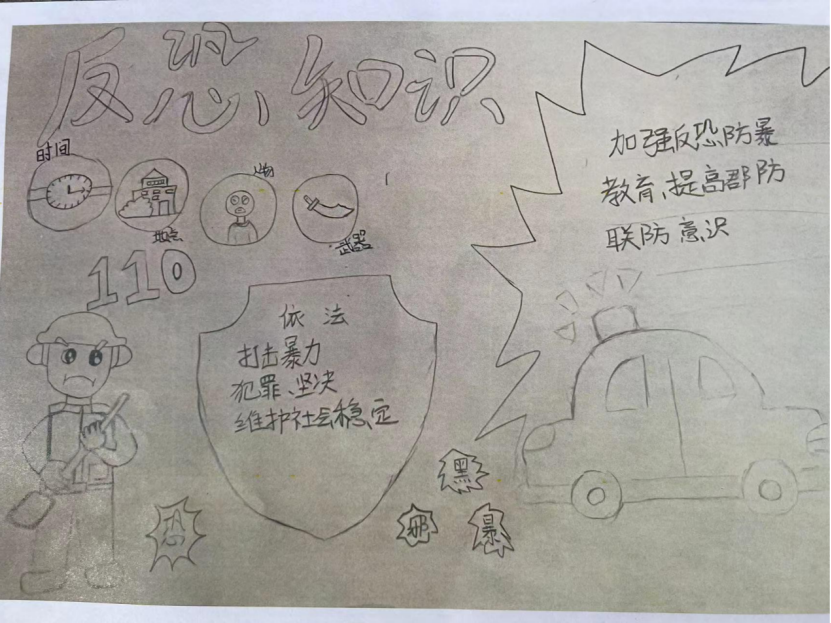 反恐知识
时间
人物
地点
武器
110
加强反恐防暴
教育、提高群防
联防意识
依法
打击暴力
犯罪、坚决
维护社会稳定
黑
邪
暴
恐